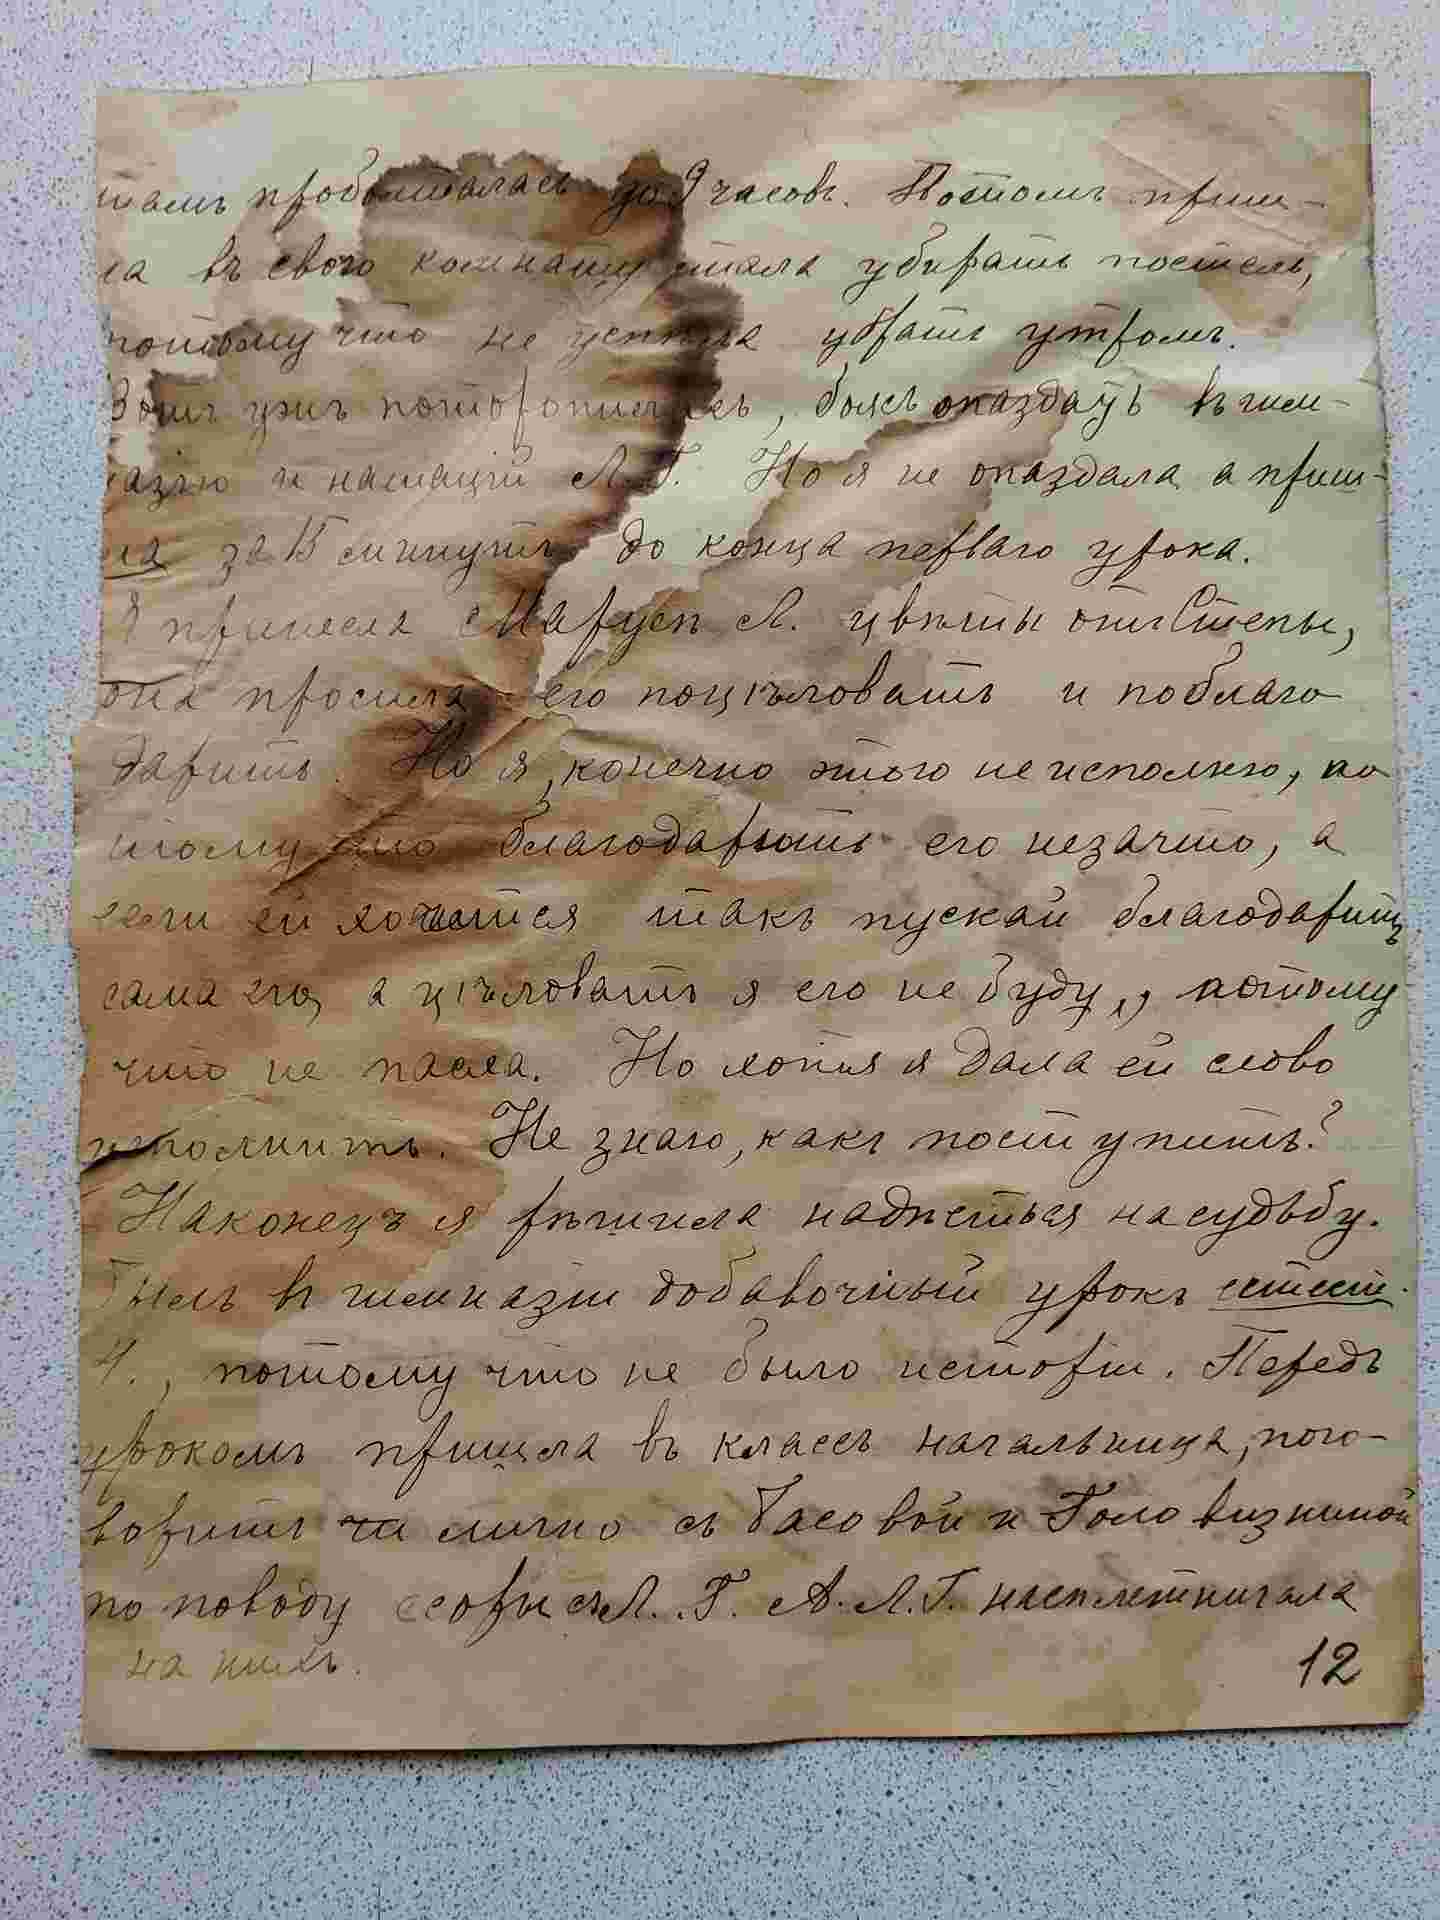 тамъ проболталась до 9 часовъ. Потомъ приш-
ла въ свою комнату стала убирать постель,
потому что не успѣла убрать утромъ.
Вотъ ужъ поторопилась, боясь опаздать въ гим-
назію и на лицій Л. Г. Но я не опаздала а приш-
ла за 15 минутъ до конца перваго урока.
Я принесла Марусѣ Л. цвѣты отъ Степы,
она просила его поцѣловать и поблаго
дарить. Но я, конечно этого не исполню, по
тому что благодарить его незачто, а
если ей хочется такъ пускай благодаритъ
сама его, а цѣловать я его не буду, потому
что не пасха. Но хотя я дала ей слово
исполнить. Не знаю, какъ поступить?
Наконецъ я рѣшила надѣяться на судьбу.
Былъ въ гимназіи добавочный урокъ естест.
Ч., потому что не было исторіи. Передъ
урокомъ пришла въ классъ начальница, пого-
ворить лично съ Басовой и Головизниной
по поводу ссоры съ Л. Г. А. Л. Г. насплетничала
на нихъ.
12